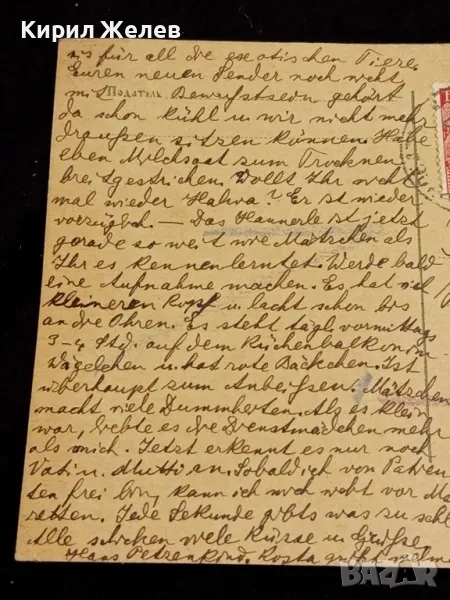 Кирил Желев
nis für all die exotischen Tiere.
Euren neuen Sender noch nicht
Податель
mit Bewußtsein gehört
da schon kühl u. wir nicht mehr
draußen sitzen können. Habe
eben Milchsaat zum Trocknen
breitgestrichen. Wollt Ihr noch
mal wieder Halwa? Er ist wieder
vorzüglich. — Das Hannerle ist jetzt
gerade so weit wie Mätzchen als
Ihr es kennenlerntet. Werde bald
eine Aufnahme machen. Es hat viel
kleineren Kopf u. lacht schon bis
an die Ohren. Es steht tägl. vormittags
3-4 Std. auf dem Küchenbalkon im
Wägelchen u. hat rote Bäckchen. Ist
überhaupt zum Anbeißen. Mätzchen
macht viele Dummheiten. Als es klein
war, liebte es die Dienstmädchen mehr
als mich. Jetzt erkennt es nur noch
Vati u. Mutti an. Sobald ich von Patien
ten frei bin, kann ich mich nicht vor Mä
retten. Jede Sekunde gibts was zu
Alle schicken viele Küsse u. Grüße
Hans
bazar.bg